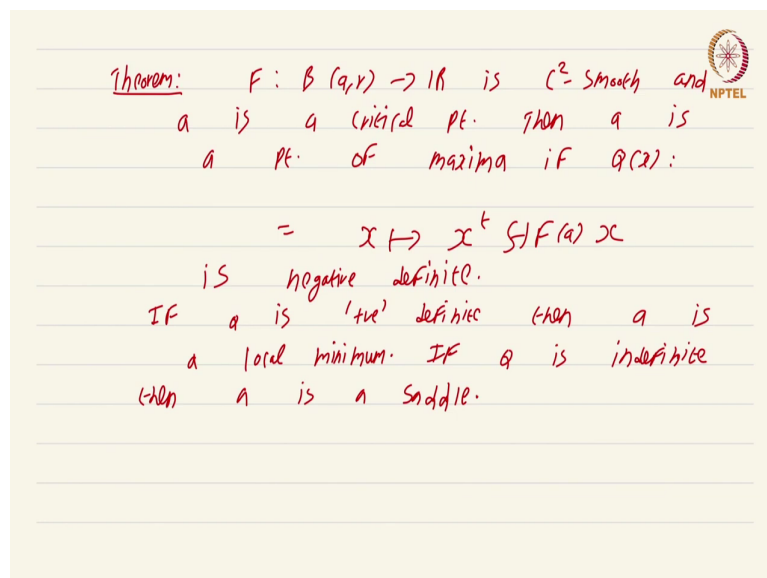 Theorem: F : B (a,r) → IR is C²- smooth and
NPTEL
a is a critical pt. Then a is
a pt. of maxima if Q(x) :
= x ↦ xᵗ HF(a) x
is negative definite.
If Q is '+ve' definite then a is
a local minimum. If Q is indefinite
then a is a saddle.